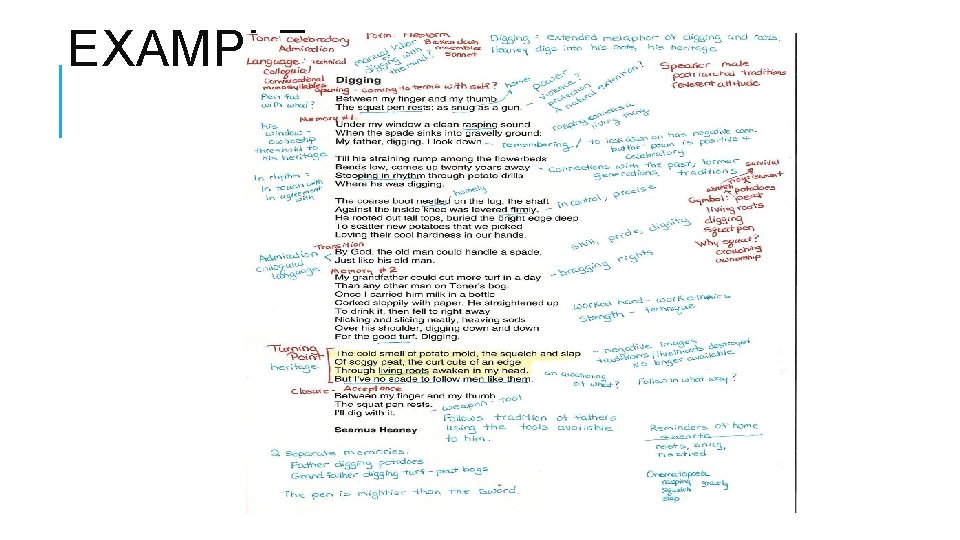 EXAMPLE
Tone: Celebratory
Admiration
Language: Technical
Colloquial
Conversational
monosyllables
Form: Freeform
Breaks down
resembles
sonnet
manual labor
digging with
the mind?
Digging = extended metaphor of digging and roots.
Heaney digs into his roots, his heritage
Speaker male
patriarchal traditions
reverent attitude
Digging
opening - coming to terms with self?
Pen fist
with what?
Between my finger and my thumb
The squat pen rests; as snug as a gun.
home
power
violence?
protection
A natural extension?
Memory #1
his
window -
ownership
threshold to
his heritage
Under my window a clean rasping sound
When the spade sinks into gravelly ground:
My father, digging. I look down
rasping
living thing
- remembering / to look down on has negative conn.
but the poem is positive +
celebratory
Till his straining rump among the flowerbeds
Bends low, comes up twenty years away
Stooping in rhythm through potato drills
Where he was digging.
- connections with the past, former
generations, traditions
survival
nourishment
In rhythm =
in touch with
in agreement
with
homely
The coarse boot nestled on the lug, the shaft
Against the inside knee was levered firmly.
He rooted out tall tops, buried the bright edge deep
To scatter new potatoes that we picked
Loving their cool hardness in our hands.
- in control, precise
skill, pride, dignity
potatoes
Symbol: peat
living roots
digging
squat pen
Why squat?
crouching
ownership
Transition
Admiration
colloquial
language
By God, the old man could handle a spade.
Just like his old man.
- bragging rights
Memory #2
My grandfather could cut more turf in a day
Than any other man on Toner's bog.
Once I carried him milk in a bottle
Corked sloppily with paper. He straightened up
To drink it, then fell to right away
Nicking and slicing neatly, heaving sods
Over his shoulder, digging down and down
For the good turf. Digging.
worked hard - work ethics
strength - technique
Turning
Point
heritage
The cold smell of potato mold, the squelch and slap
Of soggy peat, the curt cuts of an edge
Through living roots awaken in my head.
But I've no spade to follow men like them.
- negative images
traditions / livelihoods destroyed
no longer available
an awakening
of what?
Follow in what way?
Closure - Acceptance
Between my finger and my thumb
The squat pen rests.
I'll dig with it.
- weapon - tool
Follows tradition of fathers
using the tools available
to him.
Seamus Heaney
Reminders of home
+ hearth
roots, snug,
nestled
2 separate memories:
Father digging potatoes
Grandfather digging turf - peat bogs
The pen is mightier than the sword.
Onomatopoeia
rasping gravelly
squelch
slap